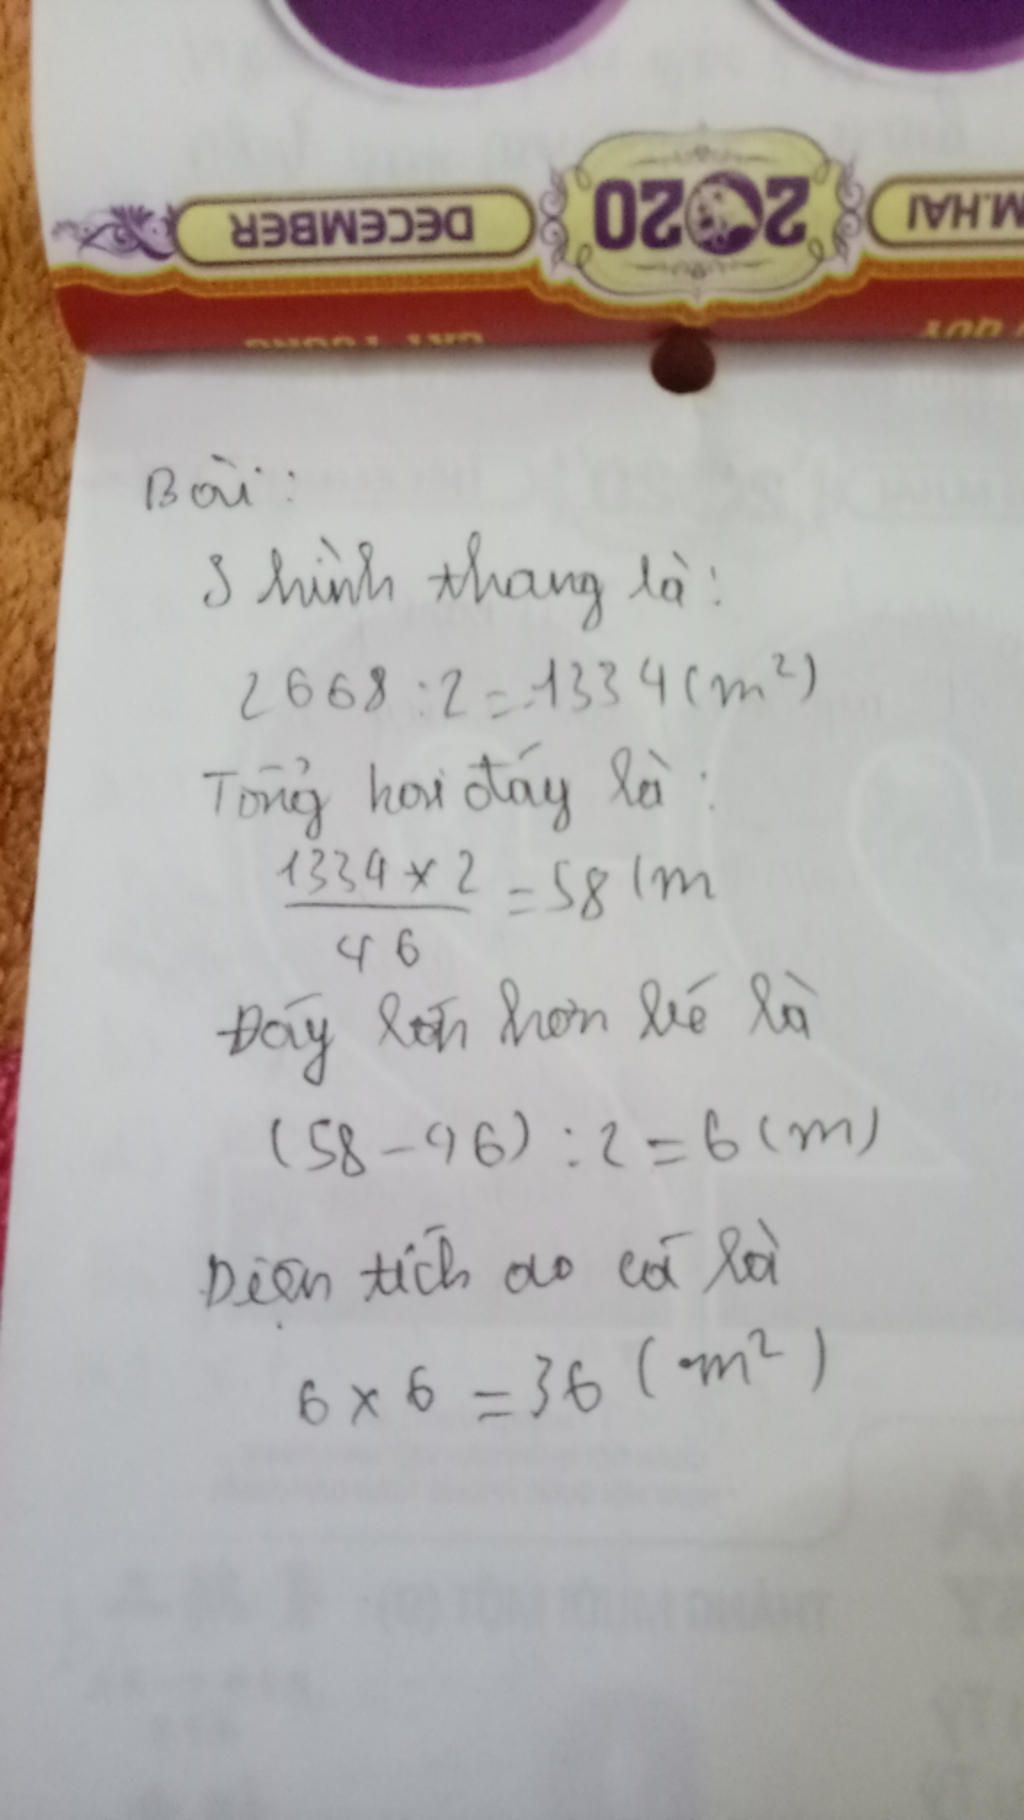 M.HAI
2020
DECEMBER
QUÝ
CÁT TƯỜNG
Bài:
S hình thang là:
2668 : 2 = 1334 (m²)
Tổng hai đáy là:
1334 x 2
= 58 (m
46
Đáy lớn hơn bé là
(58 - 46) : 2 = 6 (m)
Diện tích ao cá là
6 x 6 = 36 (m²)